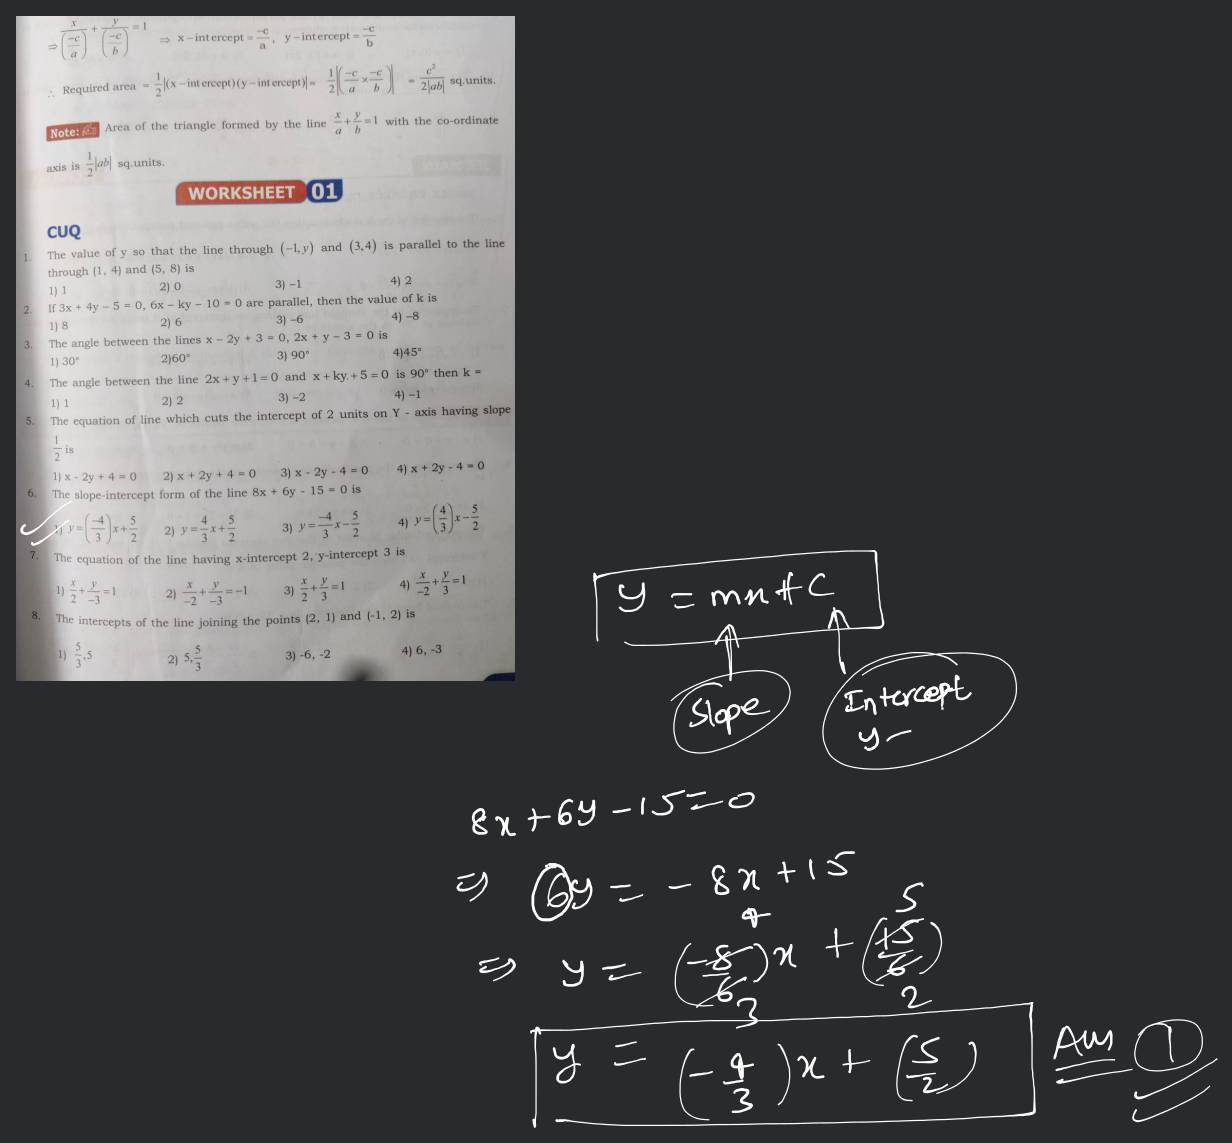 ⇒ x/(-c/a) + y/(-c/b) = 1 ⇒ x-intercept = -c/a, y-intercept = -c/b
∴ Required area = 1/2|(x-intercept)(y-intercept)| = 1/2|(-c/a × -c/b)| = c²/2|ab| sq.units.
Note: Area of the triangle formed by the line x/a + y/b = 1 with the co-ordinate
axis is 1/2|ab| sq.units.
WORKSHEET 01
CUQ
1. The value of y so that the line through (-1, y) and (3,4) is parallel to the line
through (1, 4) and (5, 8) is
1) 1 2) 0 3) -1 4) 2
2. If 3x + 4y - 5 = 0, 6x - ky - 10 = 0 are parallel, then the value of k is
1) 8 2) 6 3) -6 4) -8
3. The angle between the lines x - 2y + 3 = 0, 2x + y - 3 = 0 is
1) 30° 2)60° 3) 90° 4)45°
4. The angle between the line 2x + y + 1 = 0 and x + ky. + 5 = 0 is 90° then k =
1) 1 2) 2 3) -2 4) -1
5. The equation of line which cuts the intercept of 2 units on Y - axis having slope
1/2 is
1) x - 2y + 4 = 0 2) x + 2y + 4 = 0 3) x - 2y - 4 = 0 4) x + 2y - 4 = 0
6. The slope-intercept form of the line 8x + 6y - 15 = 0 is
1) y = (-4/3)x + 5/2 2) y = 4/3 x + 5/2 3) y = -4/3 x - 5/2 4) y = (4/3)x - 5/2
7. The equation of the line having x-intercept 2, y-intercept 3 is
1) x/2 + y/-3 = 1 2) x/-2 + y/-3 = -1 3) x/2 + y/3 = 1 4) x/-2 + y/3 = 1
8. The intercepts of the line joining the points (2, 1) and (-1, 2) is
1) 5/3, 5 2) 5, 5/3 3) -6, -2 4) 6, -3
y = mx + C
Slope
Intercept
y -
8x + 6y - 15 = 0
⇒ 6y = - 8x + 15
⇒ y = (-8/6)x + (15/6)
4 3 5 2
y = (-4/3)x + (5/2) Ans 1